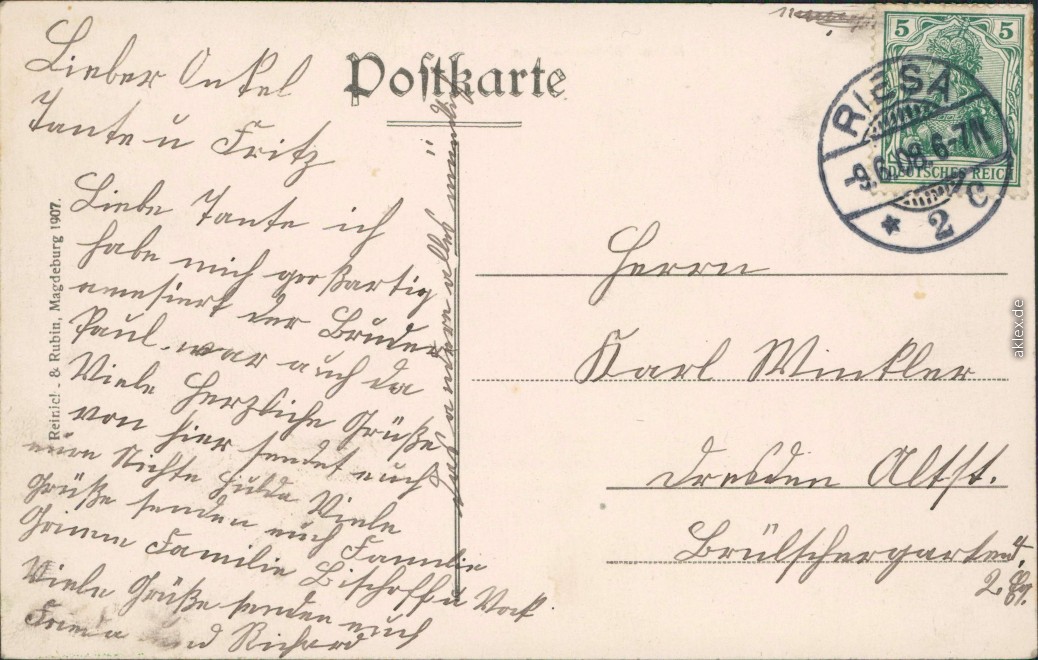 Postkarte
5 5
DEUTSCHES REICH
RIESA
-9.6.08.6-7N.
* 2 c
Lieber Onkel
Tante u Fritz
Liebe Tante ich
habe mich großartig
amesiert der Bruder
Paul war auch da
Viele Herzliche Grüße
von hier sendet euch
eure Nichte Hulda Viele
Grüße senden euch Familie
Grimm Familie Bischoff u
Viele Grüße senden euch
Frieda und Richard
das andere alles mündl
Herrn
Karl Winkler
Dresden Altst.
4.
2.
& Rubin, Magdeburg 1907.
aklex.de